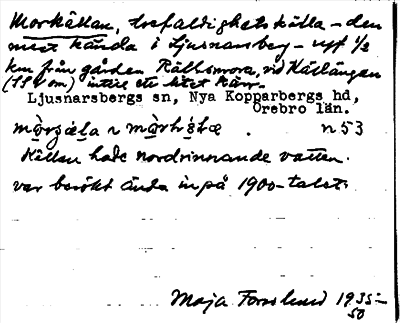 Morkällan, trefaldighetskälla – den
mest kända i Ljusnarsberg – upp 1/2
km från gården Källsmora, vid Kätlången
intill ett litet kärr.
Ljusnarsbergs sn, Nya Kopparbergs hd,
Örebro län.
n 53
Källan hade nordrinnande vatten.
var besökt ända in på 1900-talet.
Maja Forsslund 1935–
50